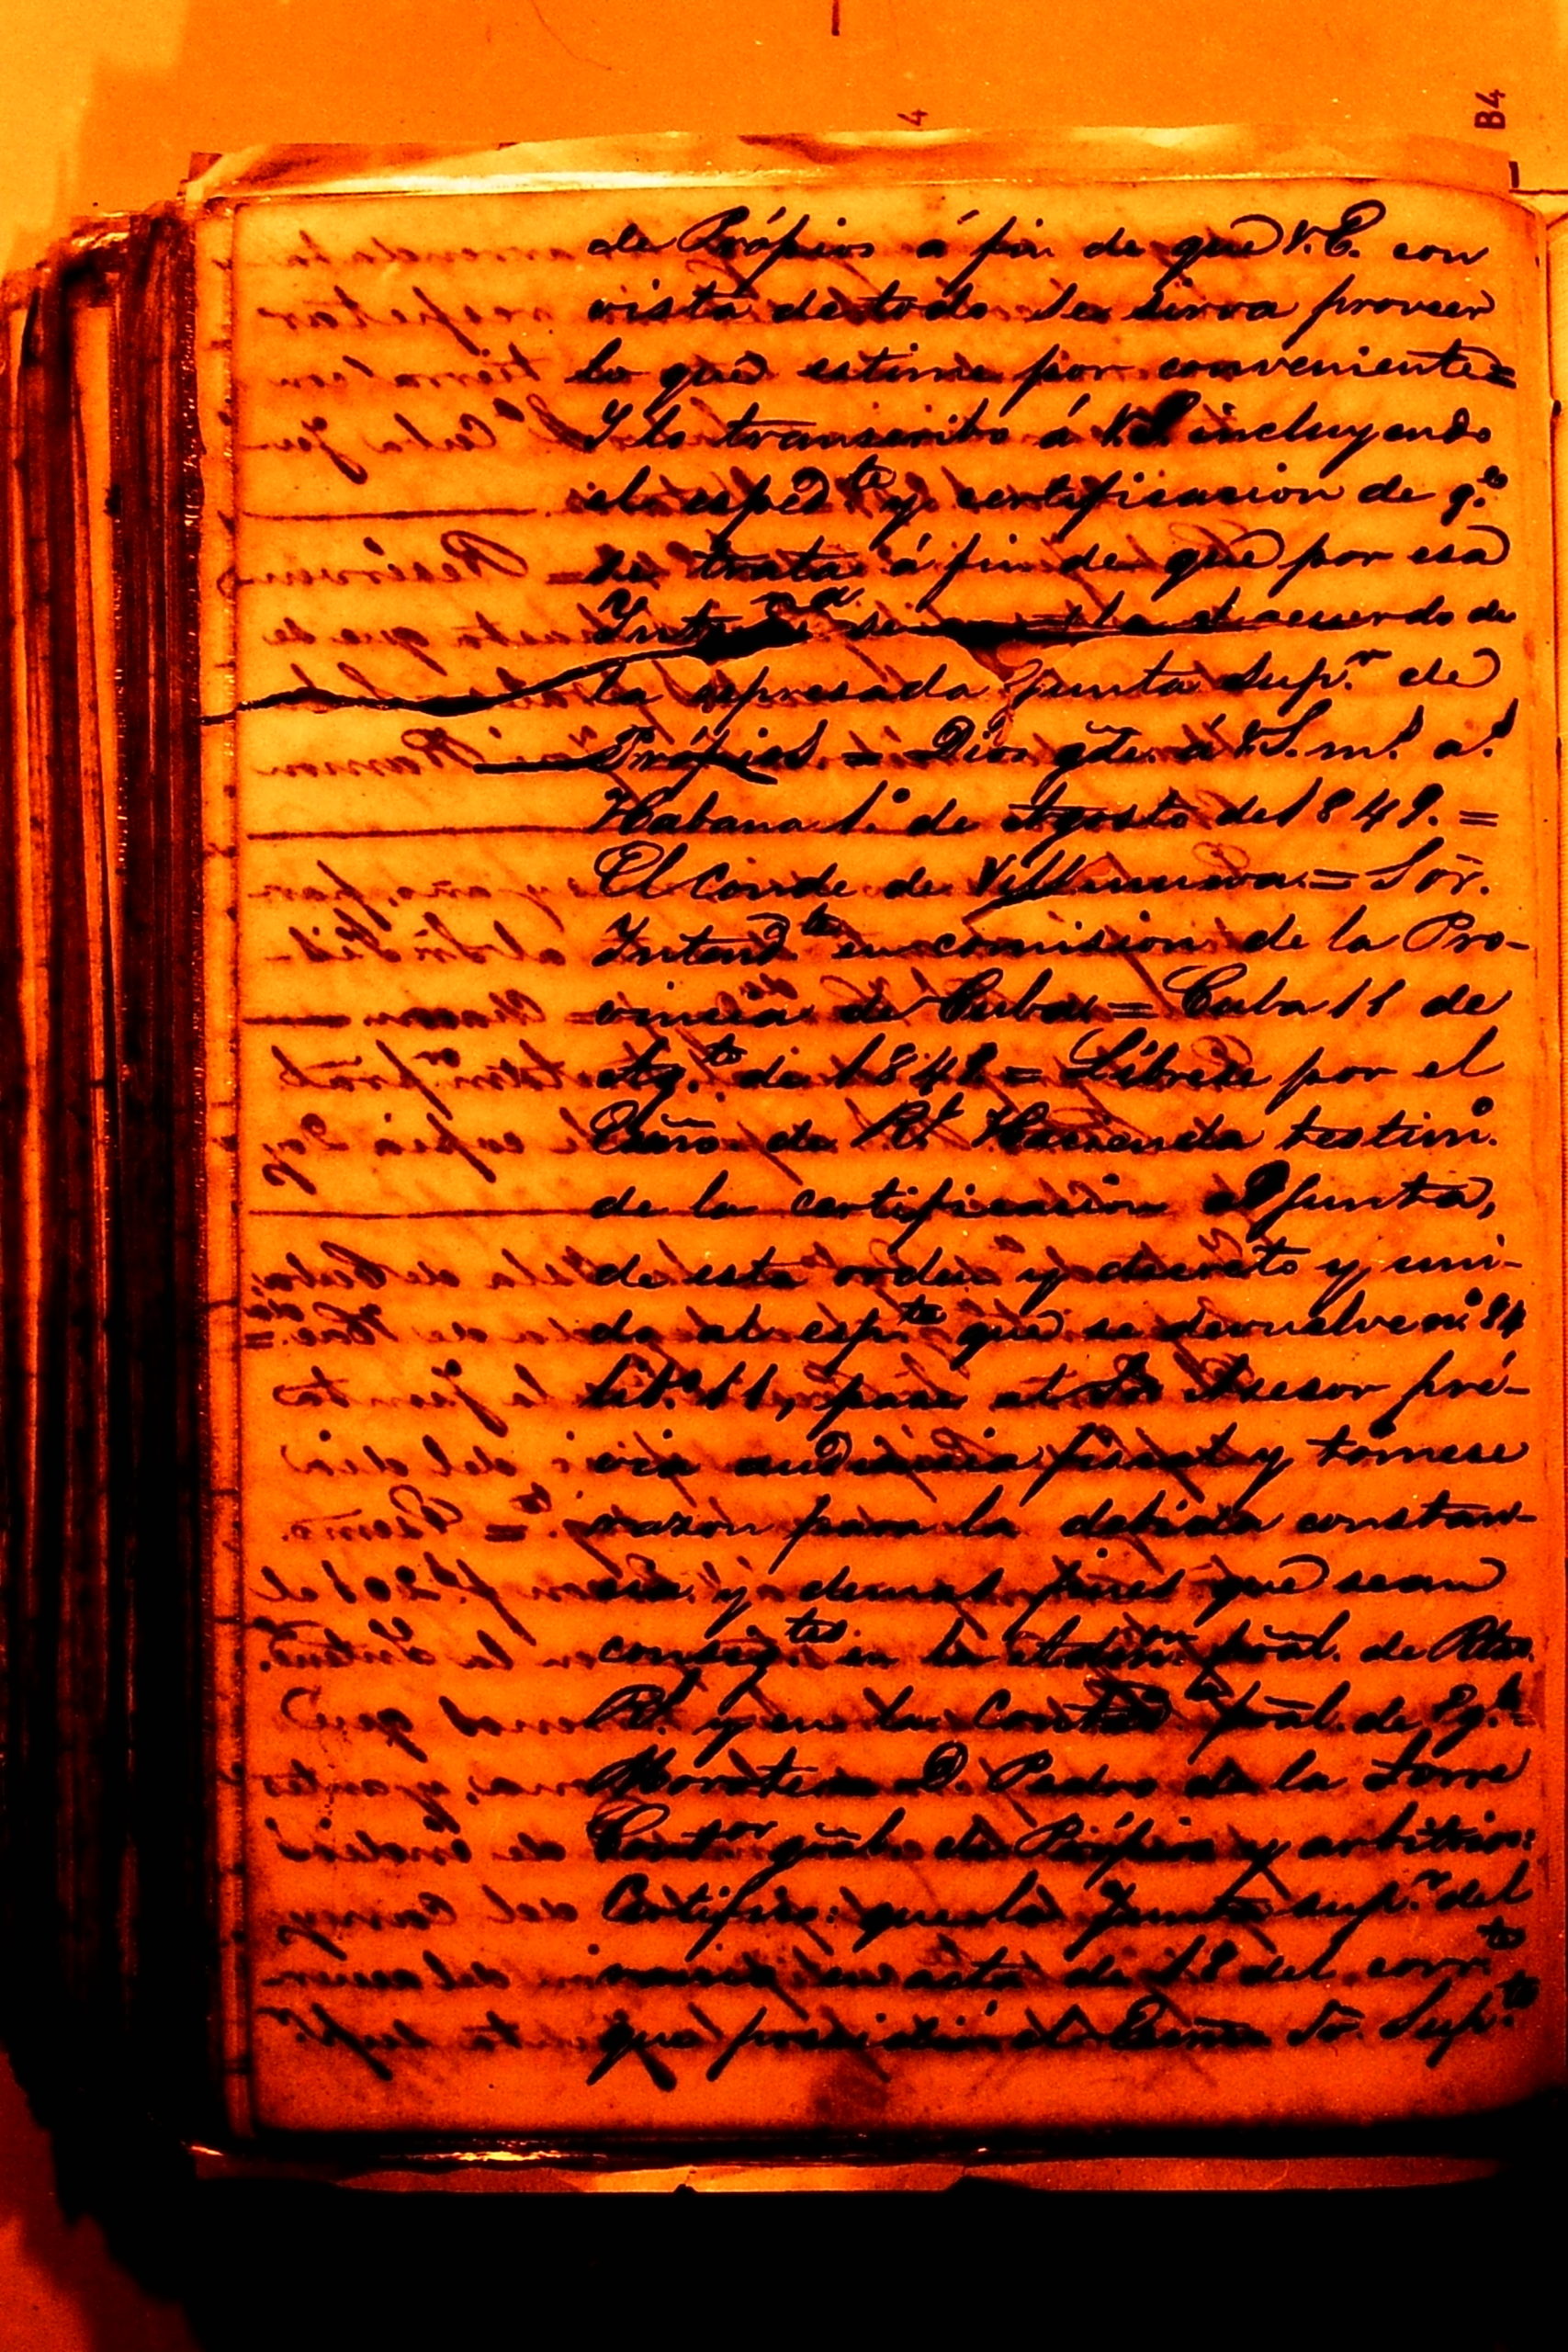 B4
4
de Própios á fin de que V.E. con
vista de todo se sirva proveer
lo que estime por conveniente=
Y lo transcribo á V.S. incluyendo
el esped.te y certificacion de q.e
se trata á fin de que por esa
Intend.a se acuerdo de
la espresada Junta Sup.r de
Própios = Dios gũe. á V.S. m.s a.s
Habana 1.o de Agosto de 1849. =
El Conde de Villanueva = Sõr.
Intend.te en comision de la Pro-
vincia de Cuba = Cuba 11 de
Ag.to de 1849 = Líbrese por el
Esño. de R.l Hacienda testim.o
de la certificacion adjunta,
de esta orden y decreto y uni-
do al esp.te que se devuelve n.o 84
Lib.o 11, pase al Sõr Asesor pré-
via audiencia fiscal y tómese
razon para la debida constan-
cia y demas fines que sean
consig.tes en la Adm.on pral. de Rtas.
R.s y en la Contad.a pral. de Eg.to=
D. Pedro de la Torre
Cont.or gral. de Própios y arbitrios:
Certifico: que la Junta sup.r del
ramo en acta de 18 del corr.te
que presidió el Esmo. Sõr. Sup.te